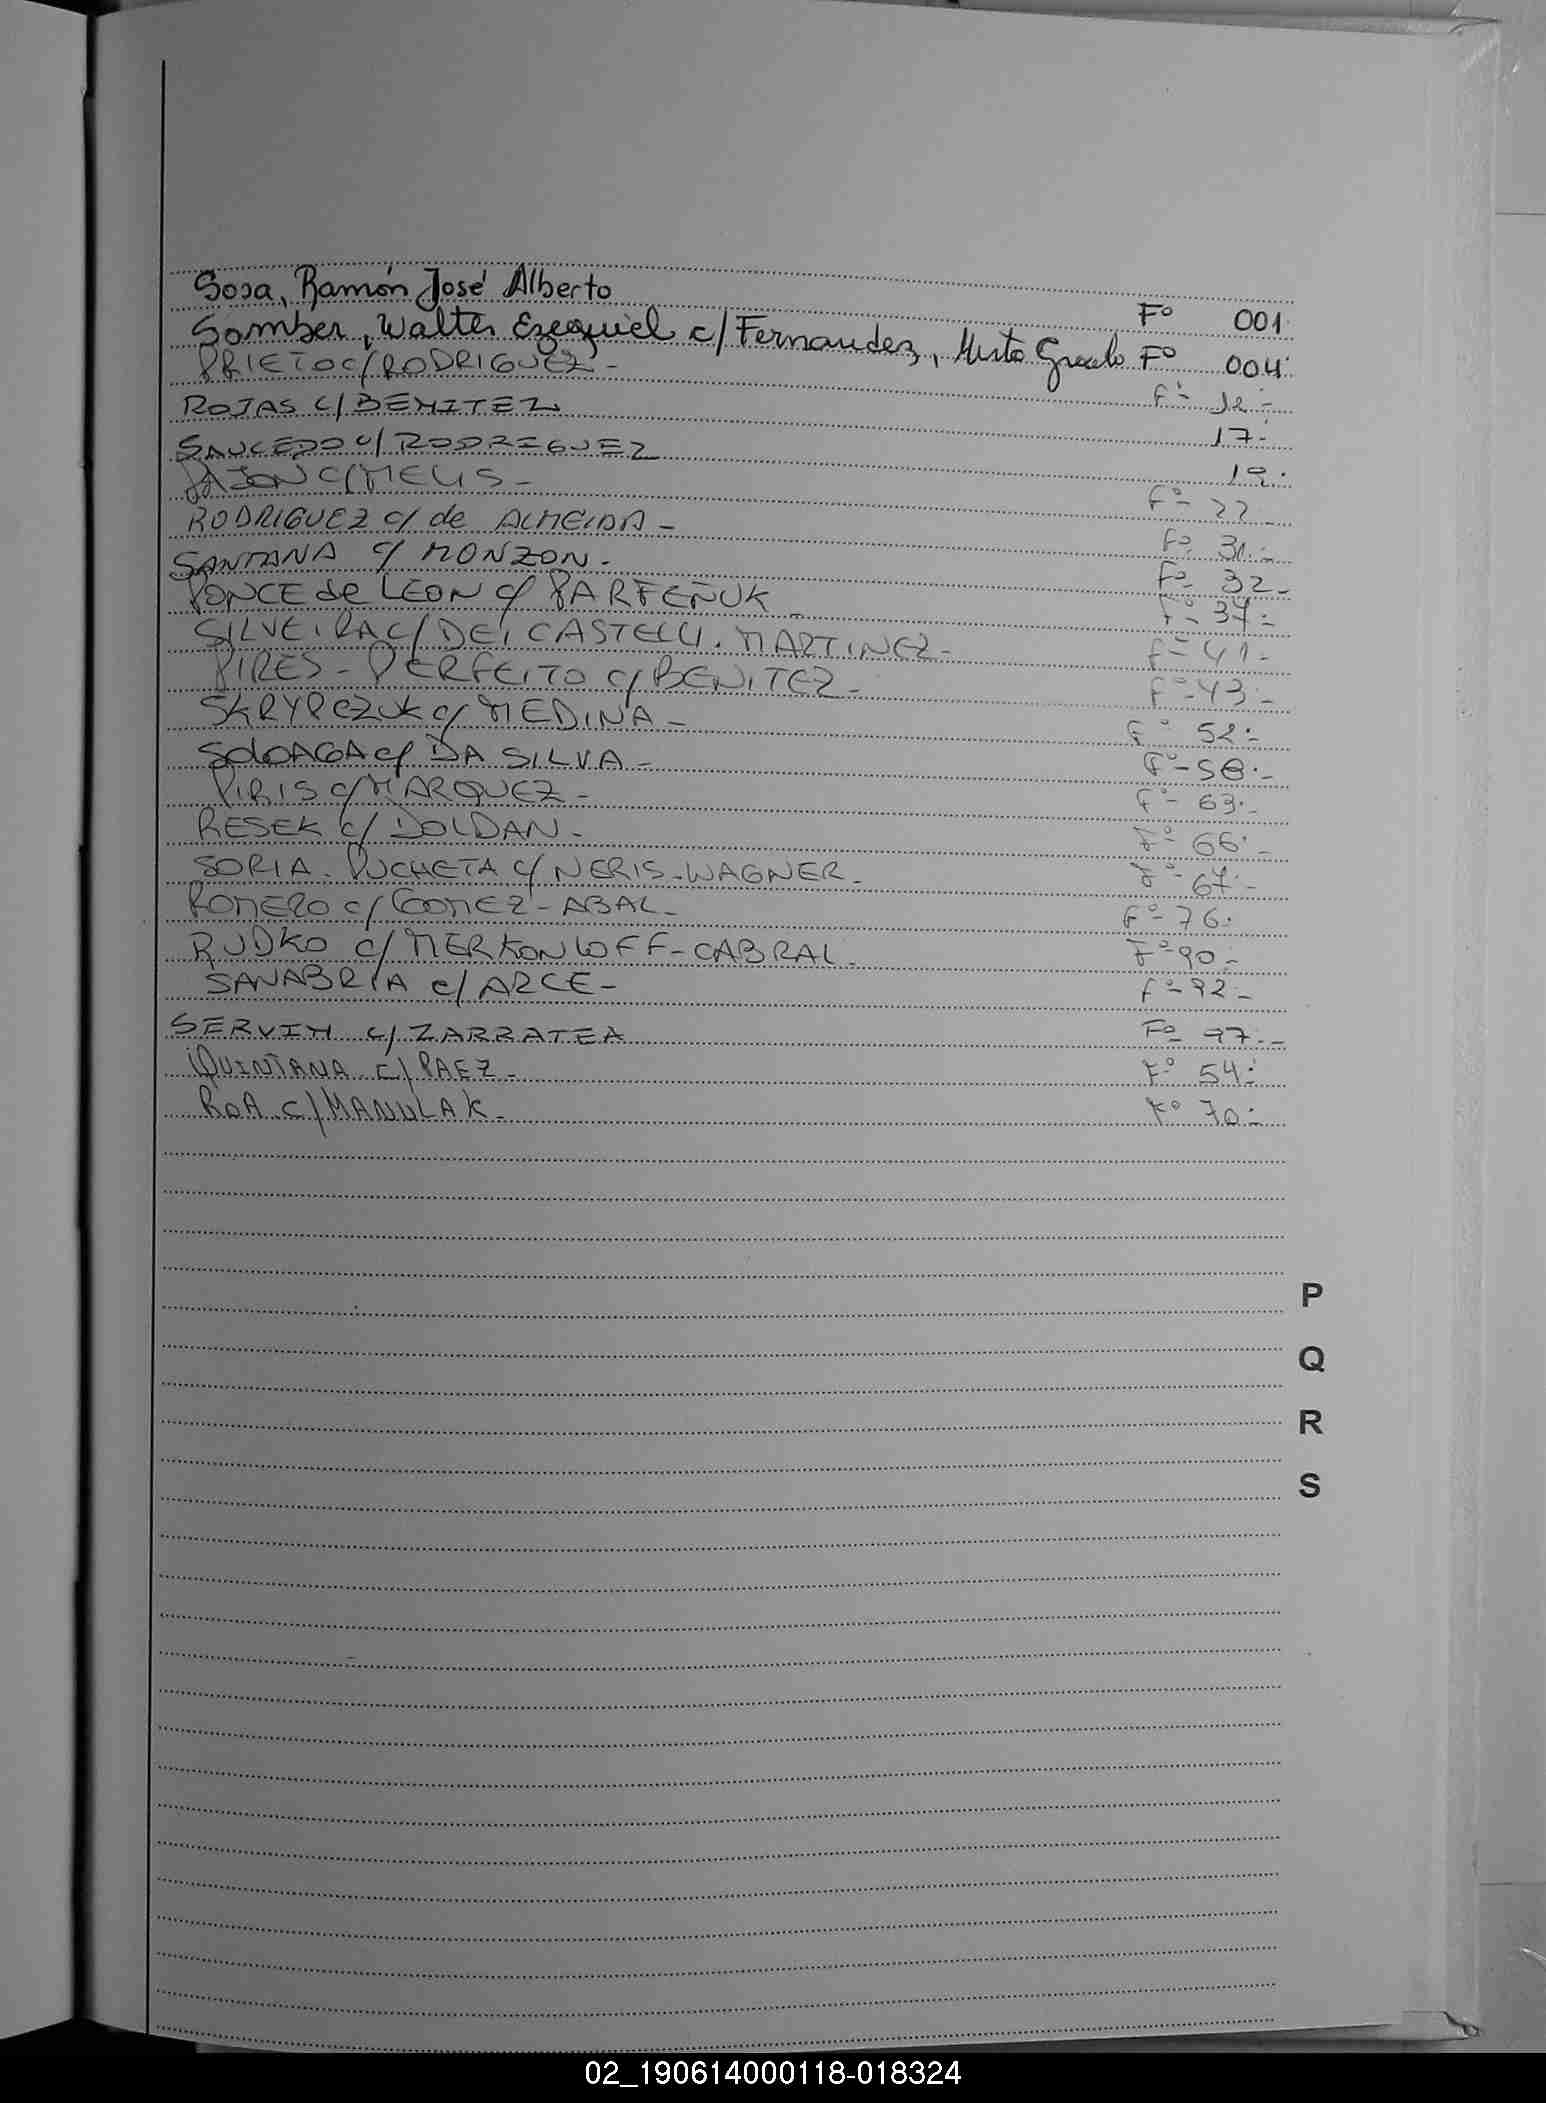 Sosa, Ramón José Alberto Fº 001.
Somber, Walter Ezequiel c/ Fernandez, Mirta Fº 004.
PRIETO c/ RODRIGUEZ - Fº 12 -
ROJAS c/ BENITEZ 17.-
SAUCEDO c/ RODRIGUEZ 19.
PAJON c/ MELIS - Fº 22 -
RODRIGUEZ c/ de ALMEIDA - Fº 31.-
SANTANA c/ MONZON. Fº 32 -
PONCE de LEON c/ PARFEÑUK - Fº 37.-
SILVEIRA c/ DEI CASTELLI. MARTINEZ - Fº 41 -
PIRES - PERFEITO c/ BENITEZ - Fº 43.-
SKRYPCZUK c/ MEDINA - Fº 52.-
SOLOAGA c/ DA SILVA - Fº 58.-
PIRIS c/ MARQUEZ - Fº 63.-
RESEK c/ DOLDAN - Fº 66.-
SORIA. PUCHETA c/ NERIS - WAGNER - Fº 67.-
ROMERO c/ GOMEZ - ABAL - Fº 76.
RUDKO c/ - CABRAL - Fº 90.-
SANABRIA c/ ARCE - Fº 92.-
SERVIN c/ ZARRATEA Fº 97.-
QUINTANA c/ PAEZ - Fº 54.-
ROA c/ MANULAK - Fº 70.-
P
Q
R
S
02_190614000118-018324